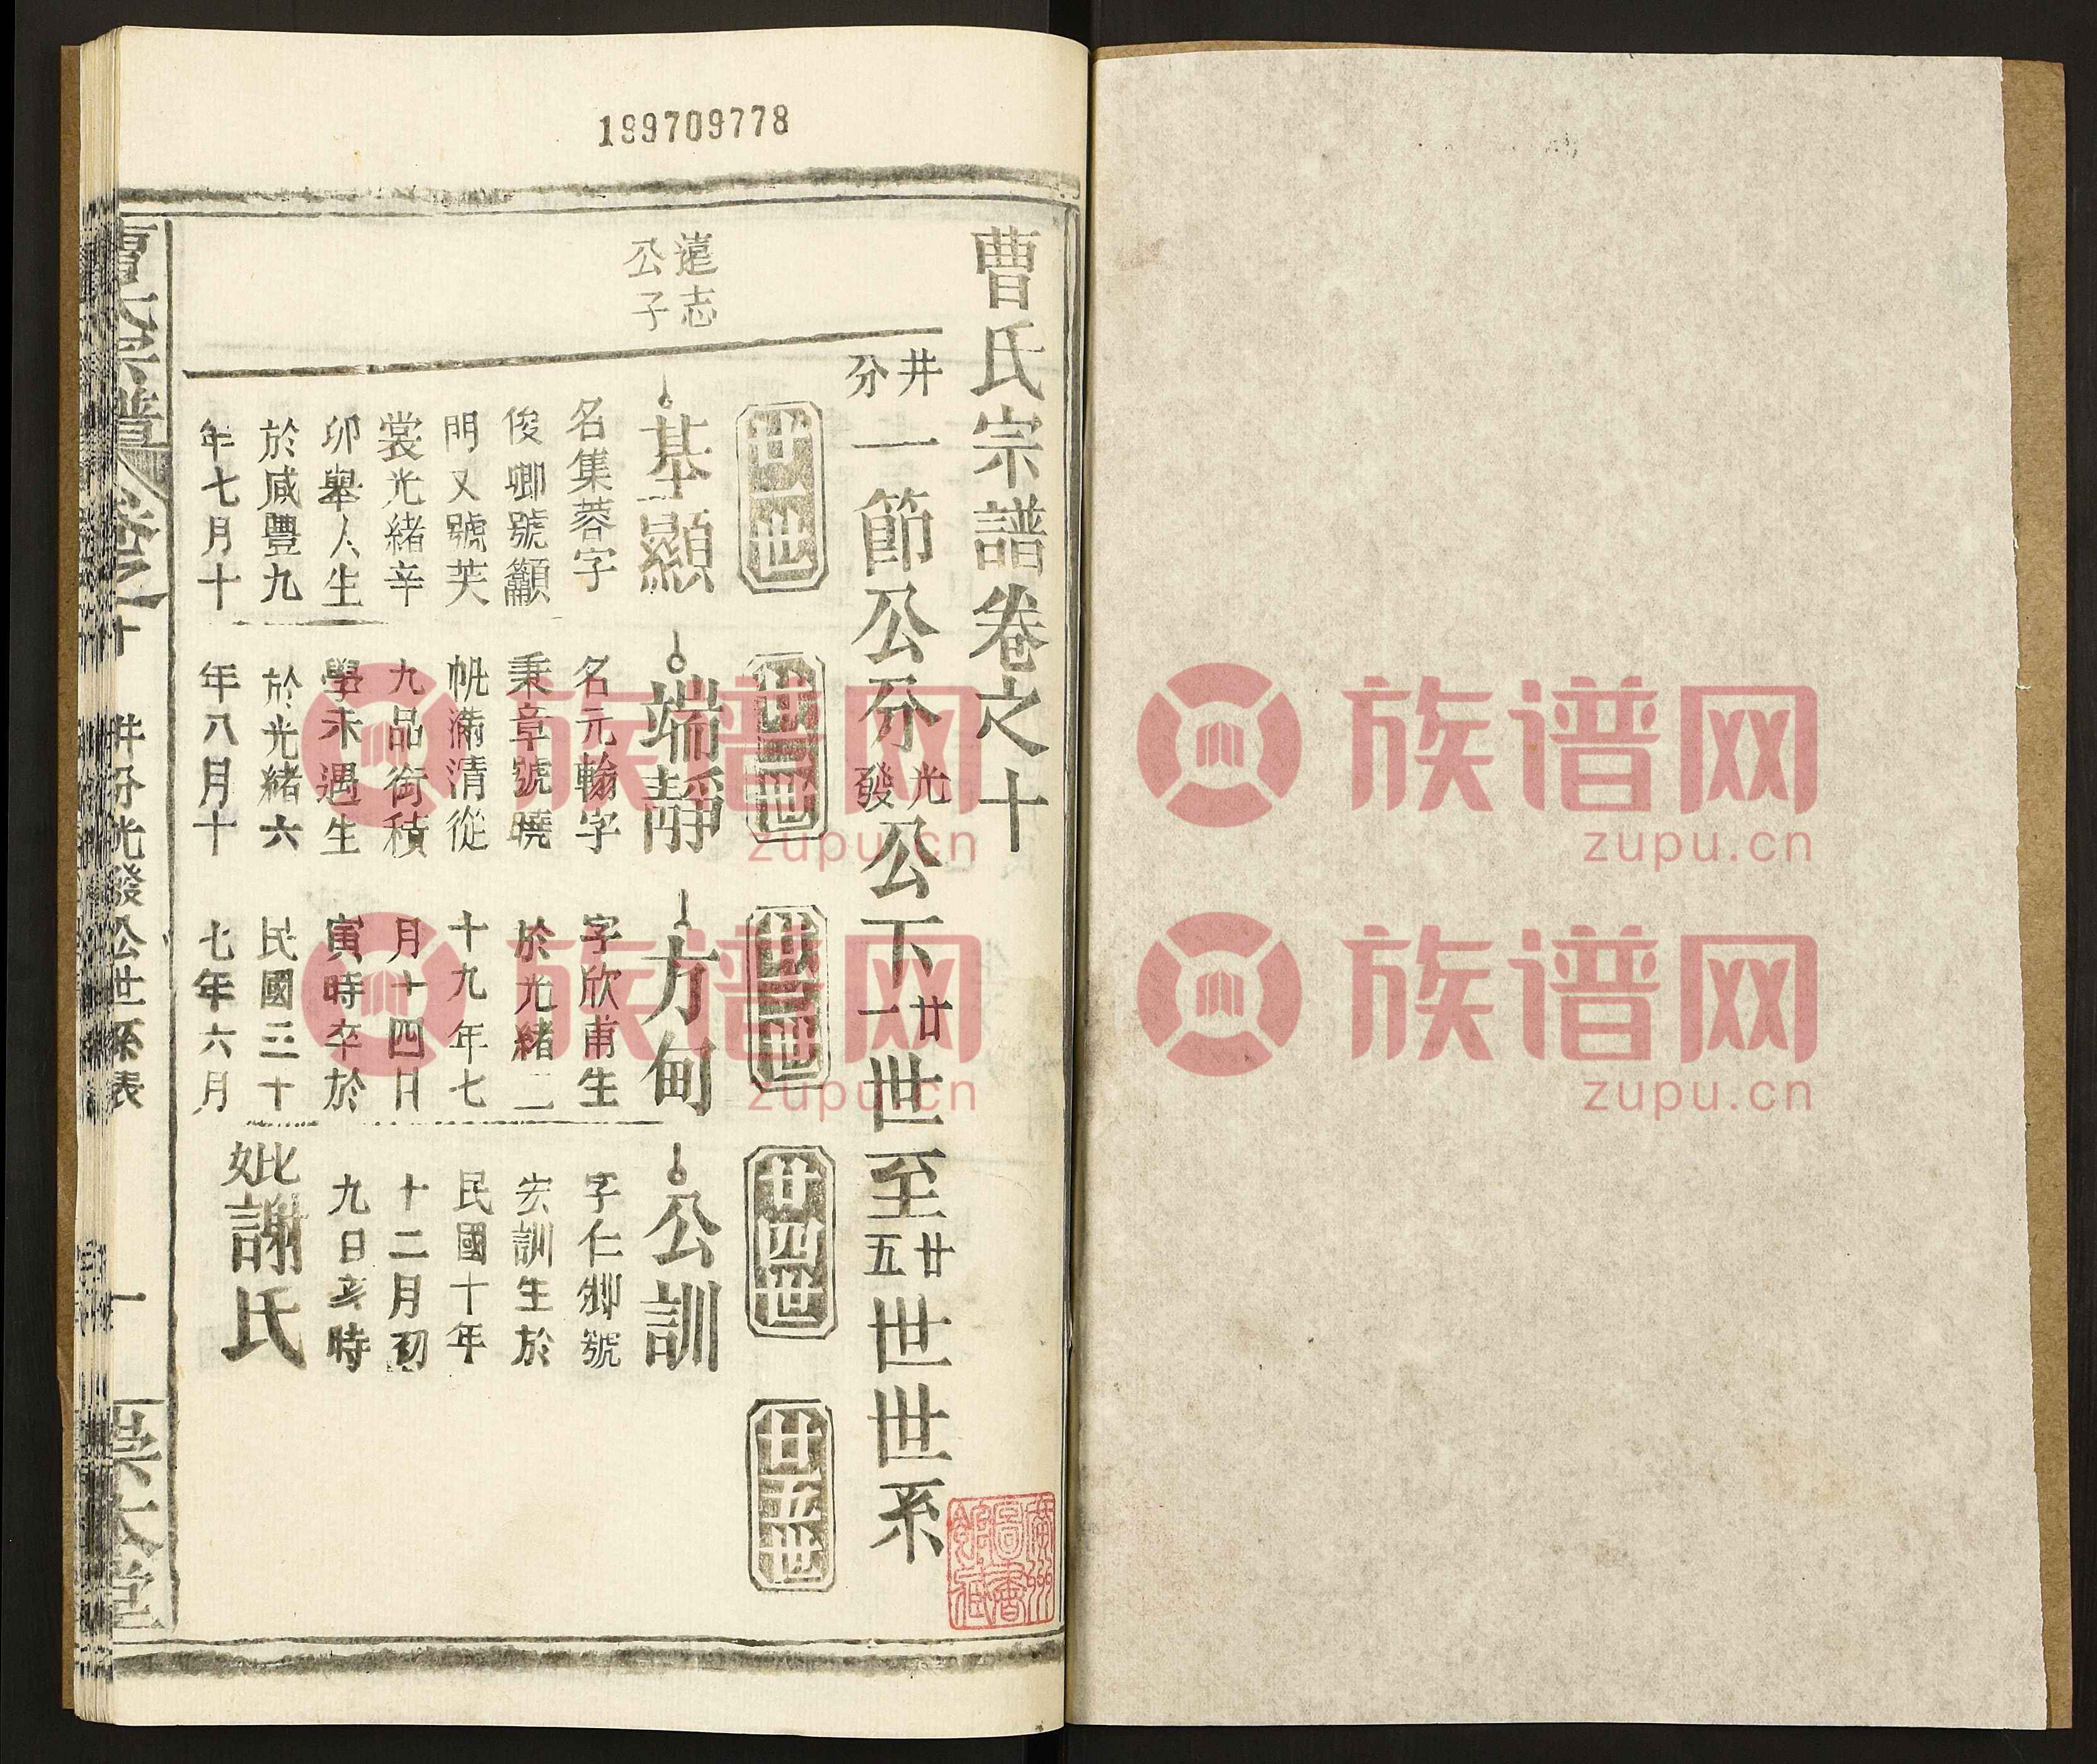 199709778
曹氏宗譜卷之十
井分一節公分光發公下廿一世至廿五世世系
廿一世
廿二世
廿三世
廿四世
廿五世
遠志
公子
基顯
名集蓉字
俊卿號籲
門又號芙
裳光緒辛
卯舉人生
於咸豐九
年七月十
端靜
名元翰字
秉章號曉
帆滿清從
九品銜積
學未遇生
於光緒六
年八月十
方甸
字欣甫生
於光緒二
十九年七
月十四日
寅時卒於
民國三十
七年六月
公訓
字仁卿號
宏訓生於
民國十年
十二月初
九日亥時
妣謝氏
曹氏宗譜 卷之十 井分光發公世系表 一
族谱网
zupu.cn
族谱网
zupu.cn
族谱网
zupu.cn
族谱网
zupu.cn